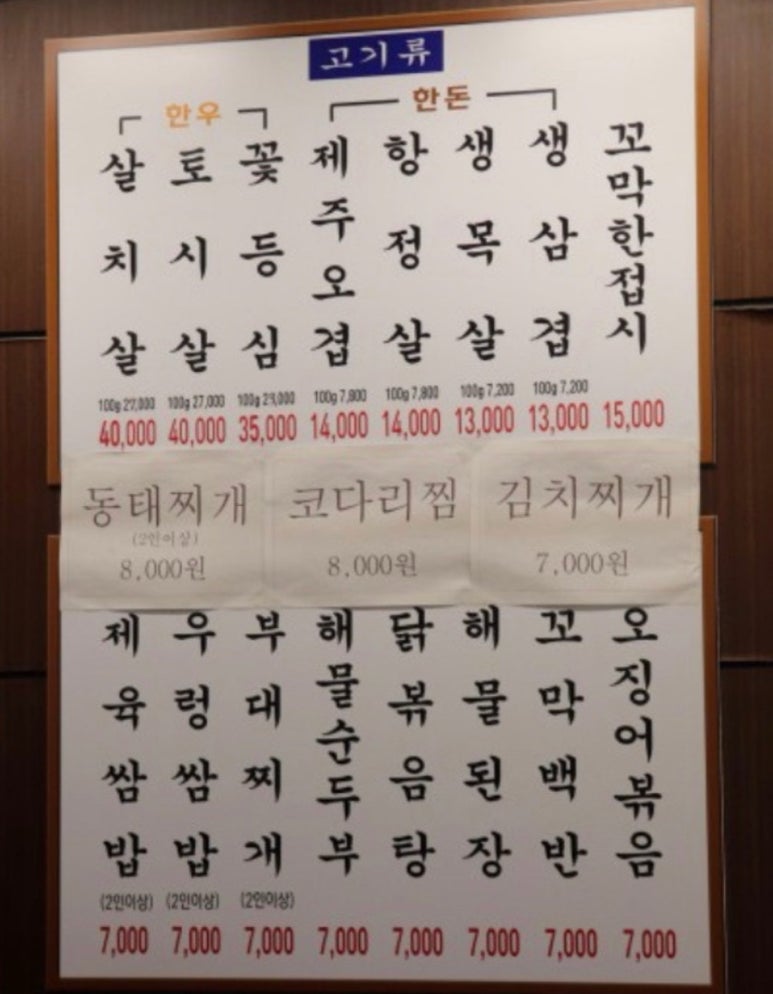 고기류
한우
한돈
살치살
토시살
꽃등심
제주오겹
항정살
생목살
생삼겹
꼬막한접시
100g 27,000 100g 27,000 100g 7,800 100g 7,800 100g 7,200 100g 7,200
40,000 40,000 35,000 14,000 14,000 13,000 13,000 15,000
동태찌개
(2인이상)
8,000원
코다리찜
8,000원
김치찌개
7,000원
제육쌈밥
우렁쌈밥
부대찌개
해물순두부
닭볶음탕
해물된장
꼬막백반
오징어볶음
(2인이상) (2인이상) (2인이상)
7,000 7,000 7,000 7,000 7,000 7,000 7,000 7,000